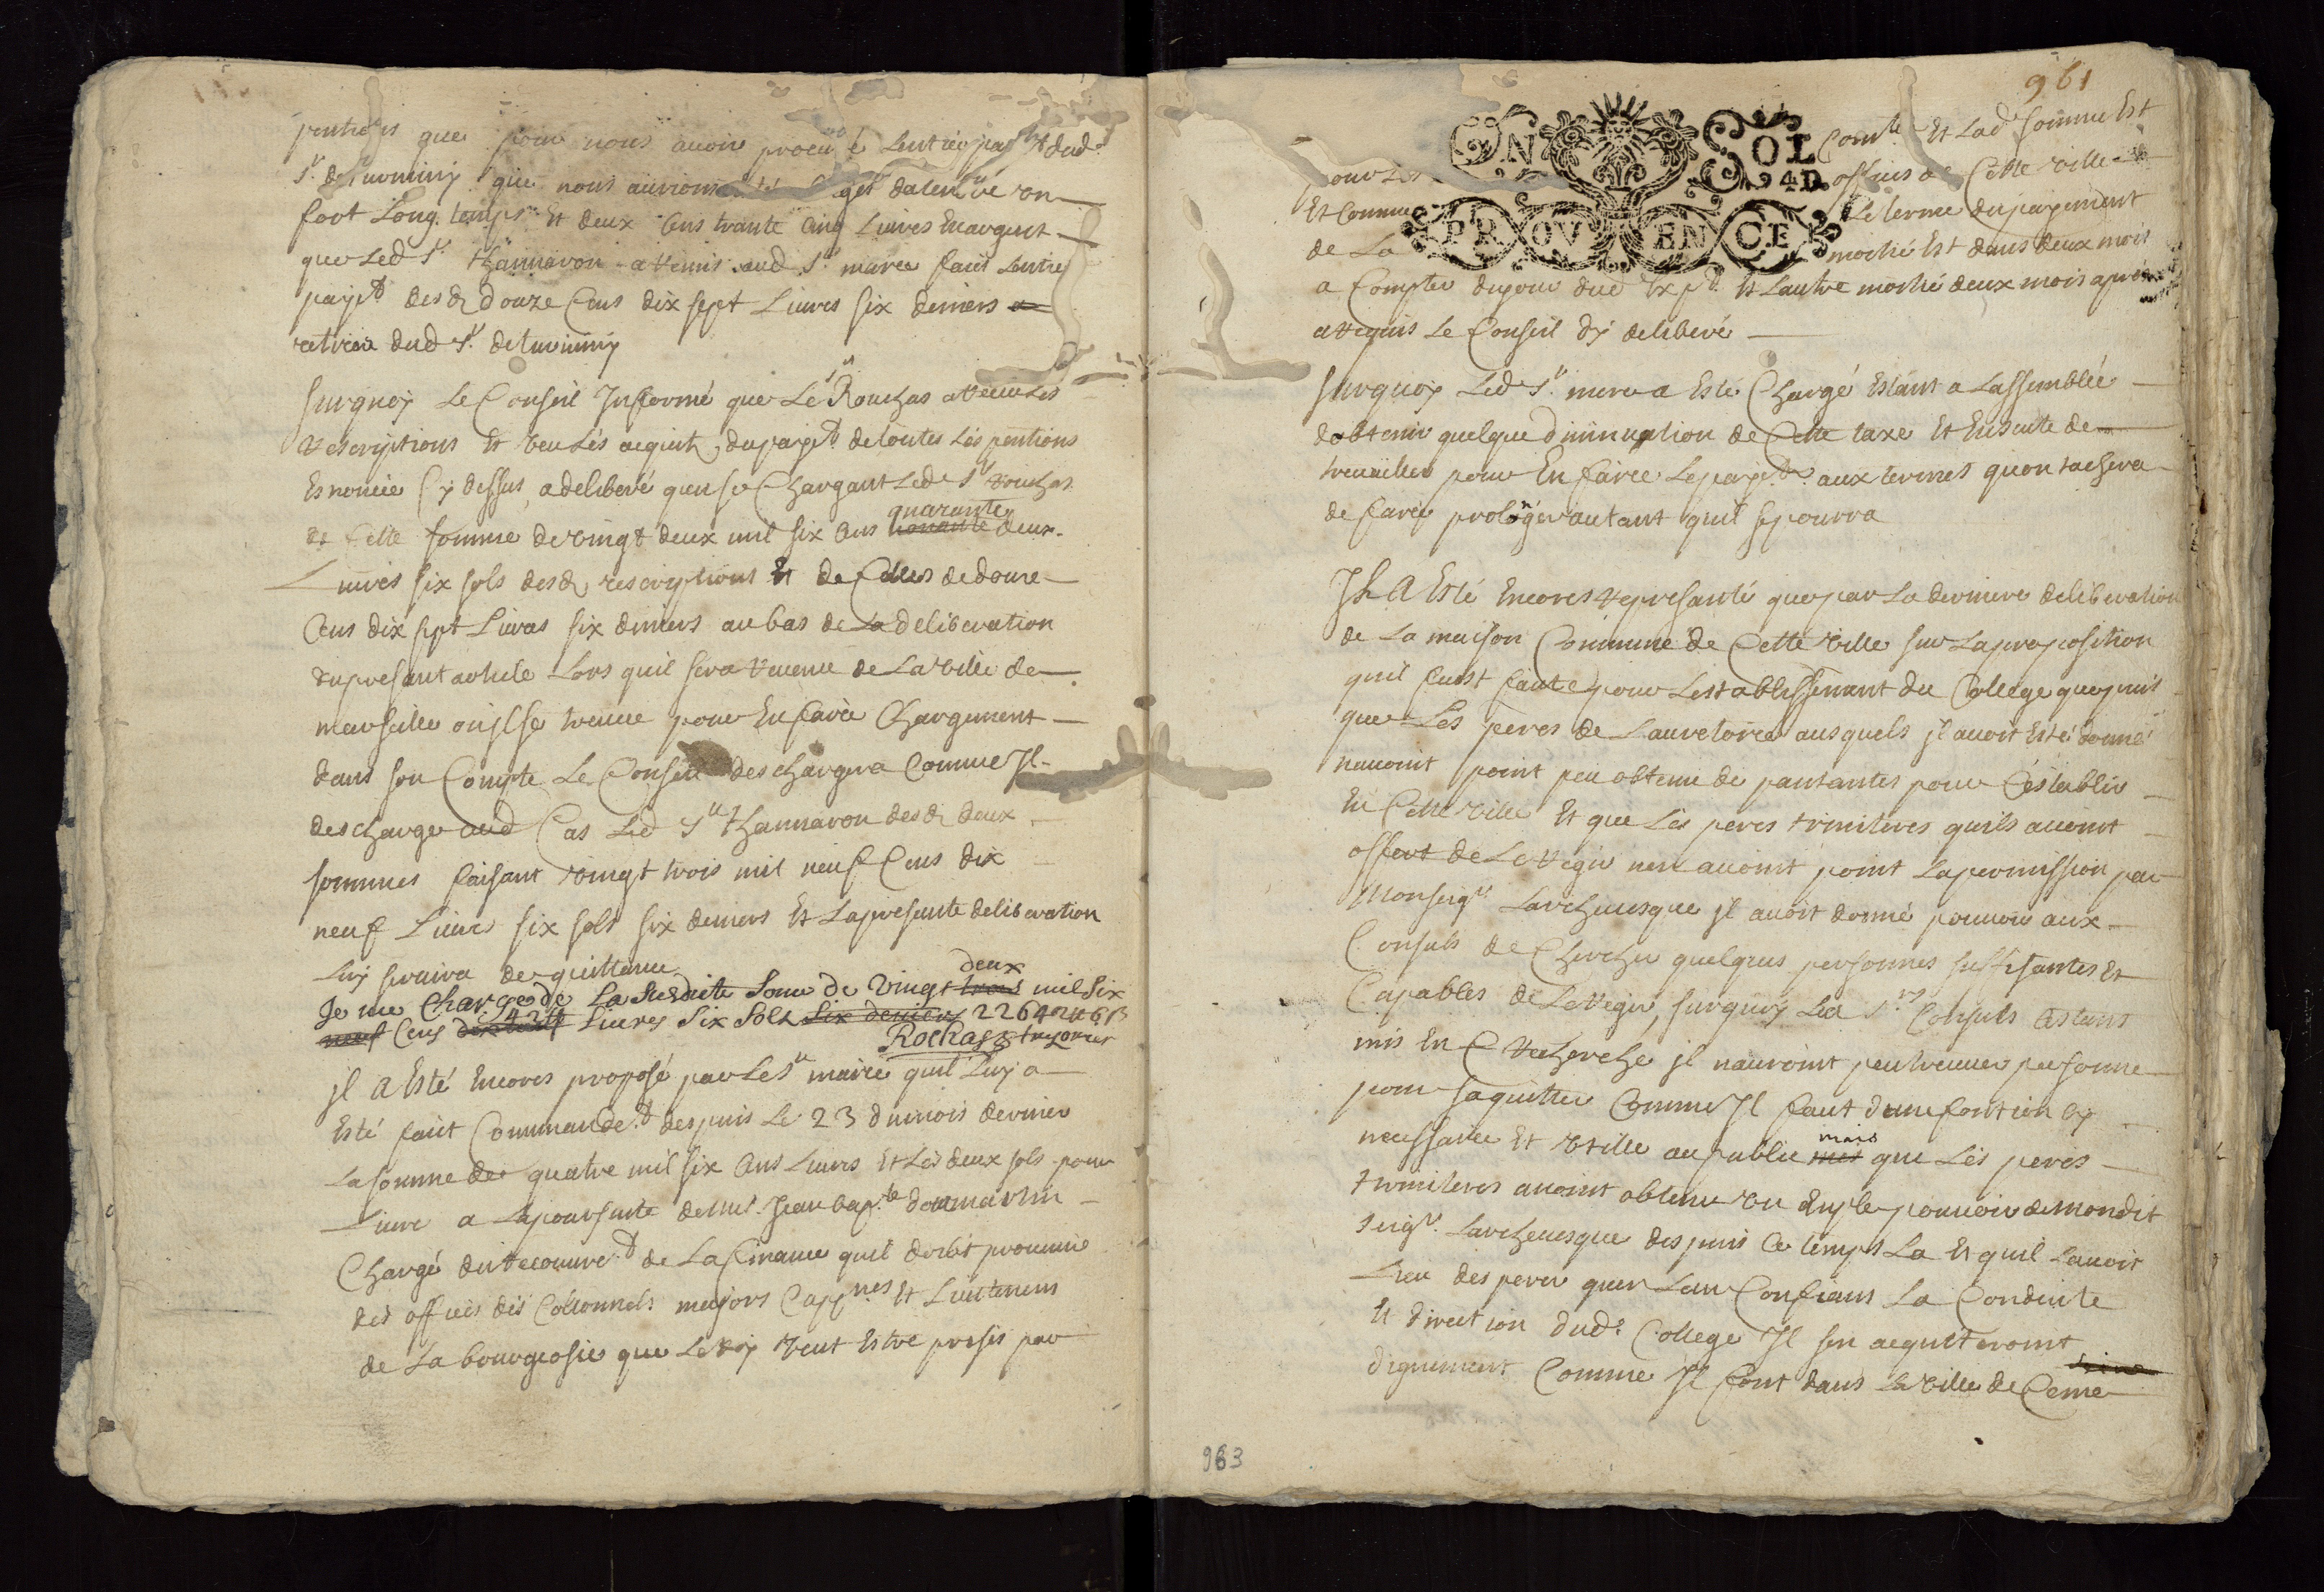 que pour nous avoir procuré lentrey par dud.
Sr. que nous aurions gés datendre un
fort Long temps Et deux Cens trante Cinq Livres En argent
que Led Sr. Thannaron a remis aud Sr. maire faict Lentrey
payet. desd douze Cens dix sept Livres six deniers a
retirer dud Sr. deluviny
Surquoy Le Conseil Informé que Le Sr Rouchas a receu Les
rescriptions Et veu Les acquits du payet. de toutes Les pentions
Esnoncée Cy dessus a deliberé quen se Chargant Led Sr rouchas
de Cette somme de vingt deux mil six Cens nonante quarante deux
Livres six sols desd rescriptions Et de Celles de douze
Cens dix sept Livres six deniers au bas de La deliberation
du presant article Lors quil sera revenu de La ville de
marseille ou jl se treuve pour En faire Chargement
dans son Compte Le Conseil deschargera Comme Il
descharge aud Cas Led Sr Thannaron desd deux
sommes faisant vingt trois mil neuf Cens dix
neuf Livres six sols six deniers Et La presante deliberation
Luy servira de quittance
Je me Charge de La Susdite Some de Vingt trois deux mil Six
neuf Cens dix neuf 42 Livres Six Solz Six deniers 22642 ll 6 s
Rochas tresorier
jl a Esté Encores proposé par Le Sr maire quil Luy a
Esté faict Commandet. despuis Le 23 du mois dernier
La somme de quatre mil six Cens Livres Et Les deux sols pour
Livre a La poursuite de Me. Jean bapte. domartin
Chargé du recouvret. de La finance quil doibt provenir
des offices des Collonnels majors Cappnes Et Lieutenens
de La bourgeosie que Le Roy veut Estre prises par
961
GEN SOL
94D
PROVENCE
Comté. Et Lad somme Est
pour Les offices de Cette ville
Et Comme Le terme du payement
de La moctié Est dans deux mois
a Compter du jour dud Expt. Et Lautre moctié deux mois aprés
a requis Le Conseil dy deliberé
Surquoy Led Sr. maire a Esté Chargé Estant a Lassemblée
dobtenir quelque diminuation de Cette taxe Et Ensuite de
travailler pour En faire Le payet. aux termes quon tachera
de faire prolonger autant quil se pourra
Jl A Esté Encores represanté que par La derniere deliberation
de La maison Commune de Cette ville sur La proposition
quil fust faite pour Lestablissemant du College que puis
que Les peres de Lauretoire ausquels jl avoit Esté donné
navoint point peu obtenu de pantantes pour Cestablir
En Cette ville Et que Les peres triniteres quils avoint
offert de Le regir nen avoint point La permission par
Monseigr Larchevesque jl avoit donné pouvoir aux
Consuls de Chercher quelques personnes suffisantes Et
Capables de Le regir, surquoy Led Srs Consuls Cestant
mis En recherche jl nauroint peu treuver personne
pour saquitter Comme Jl faut dune fontion sy
necessaire Et utille au public mes mais que Les peres
triniteres avoint obtenu un Ample pouvoir de mondit
Seigr. Larchevesque despuis Ce temps La Et quil Lavoit
Lieu desperer quen Leur Confians La Conduite
Et direction dud. College Jl sen aquiteroint
dignement Comme Jl font dans La ville de Ceine
963